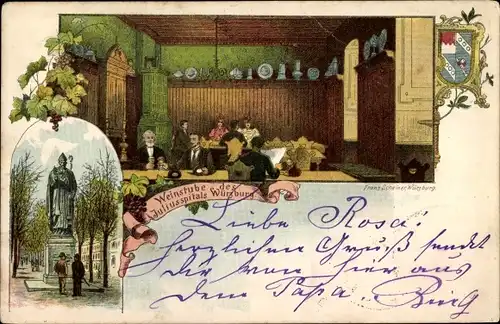 Weinstube des
Juliusspitals Würzburg
Franz Scheiner, Würzburg.
Liebe Rosa!
Herzlichen Gruß sendet
Dir von hier aus
Dein Papa.